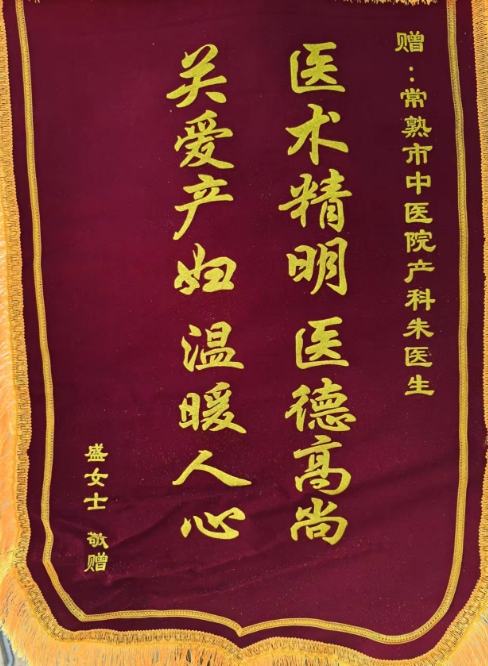 赠：常熟市中医院产科朱医生
医术精明 医德高尚
关爱产妇 温暖人心
盛女士 敬赠